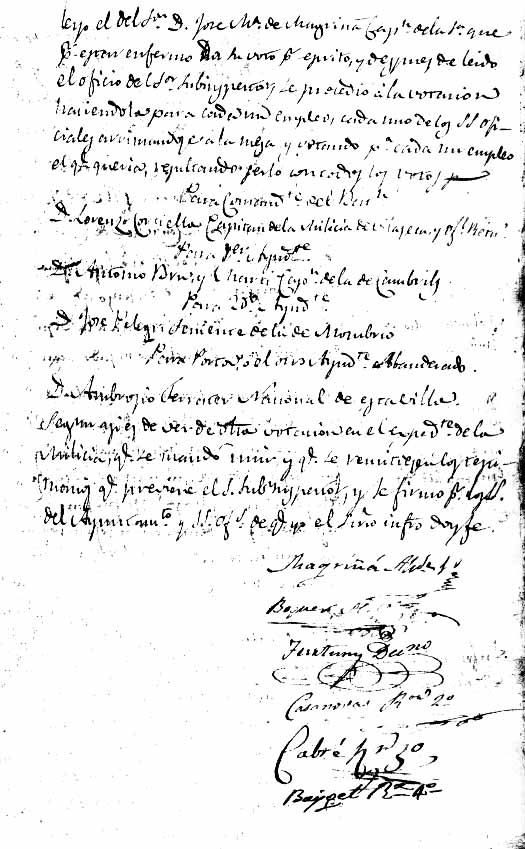 leyo el del Sor. D. Jose Ma. de Magriña Capn. de la 1a. que
pr. estar enfermo da su voto pr. escrito, y despues de leido
el oficio del Sor. Subinspector, se procedio á la votacion
haciendola para cada un empleo, cada uno de los SS. ofi-
ciales arrimandose a la mesa, y votando pa. cada un empleo
el qe. queria, resultando serlo con todos los votos
Para Comandte. del Batn.
D. Lorenzo Capitan de la Milicia de y
Para 1er. Ayudte.
Dn. Antonio Bru, y Capn. de la de Cambrils
Para 2do. Ayudte.
D. Jose Teniente de la de Montbrio
Para Porta, ó el otro Ayudte. Abanderado.
Dn. Ambrosio Ferrater Nacional de esta villa.
Segun asi es de ver de dha votacion en el expedte. de la
Milicia, qe. se mando unir y qe. se remitiesen los testi-
monios qe. previene el S. Subinspector, y se firmo pr. los SS.
del Ayuntamto. y SS. Ofs. de qe. yo el Srio infro doy fe.
Magriña Alde. 1o
Boquer
Fortuny Dcano
Casanovas Ror. 2o
Cabré Rr. 3o
Baiget Rr. 4o